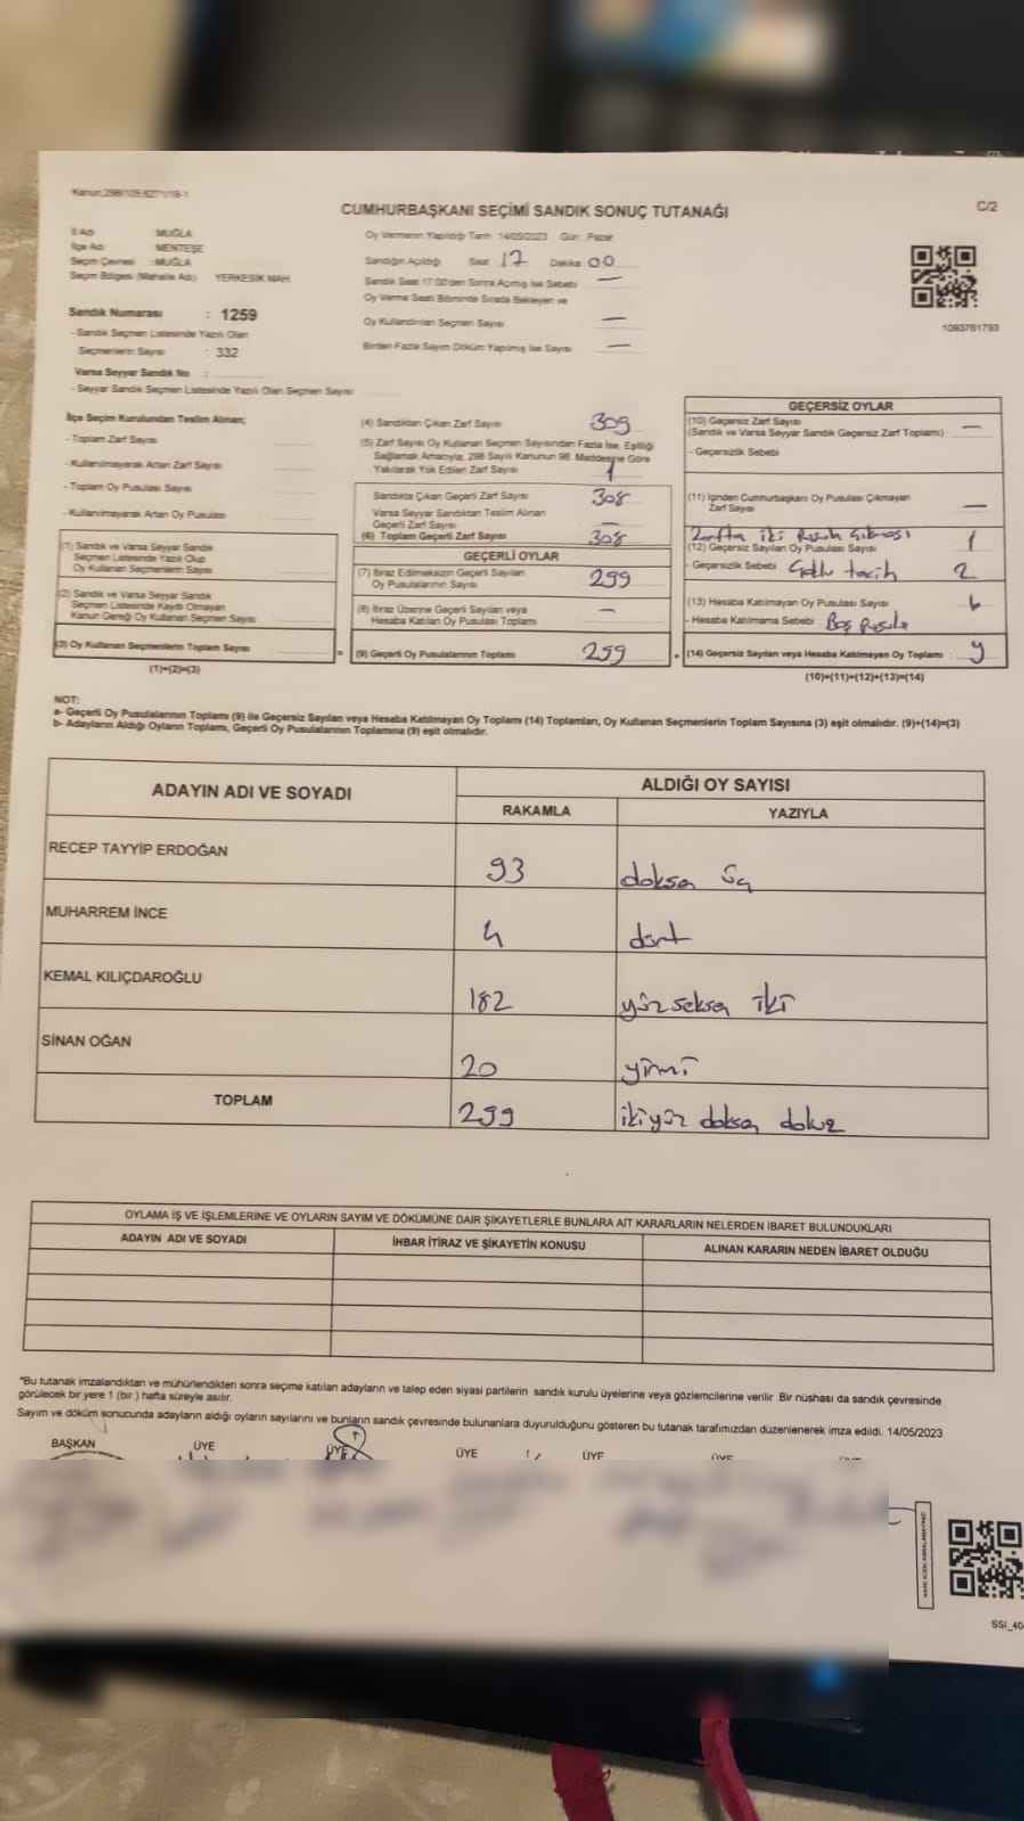 Kanun:298/105,6271/19-1
CUMHURBAŞKANI SEÇİMİ SANDIK SONUÇ TUTANAĞI
C/2
İl Adı MUĞLA
İlçe Adı MENTEŞE
Seçim Çevresi : MUĞLA
Seçim Bölgesi (Mahalle Adı) YERKESİK MAH.
Sandık Numarası : 1259
- Sandık Seçmen Listesinde Yazılı Olan
Seçmenlerin Sayısı : 332
Varsa Seyyar Sandık No :
- Seyyar Sandık Seçmen Listesinde Yazılı Olan Seçmen Sayısı
Oy Vermenin Yapıldığı Tarih 14/05/2023 Gün : Pazar
Sandığın Açıldığı Saat 17 Dakika 00
Sandık Saat 17:00'den Sonra Açılmış İse Sebebi —
Oy Verme Saati Bitiminde Sırada Bekleyen ve
Oy Kullandırılan Seçmen Sayısı —
Birden Fazla Sayım Döküm Yapılmış İse Sayısı —
1093761793
İlçe Seçim Kurulundan Teslim Alınan;
- Toplam Zarf Sayısı
- Kullanılmayarak Artan Zarf Sayısı
- Toplam Oy Pusulası Sayısı
- Kullanılmayarak Artan Oy Pusulası
(1) Sandık ve Varsa Seyyar Sandık
Seçmen Listesinde Yazılı Olup
Oy Kullanan Seçmenlerin Sayısı
(2) Sandık ve Varsa Seyyar Sandık
Seçmen Listesinde Kayıtlı Olmayan
Kanun Gereği Oy Kullanan Seçmen Sayısı
(3) Oy Kullanan Seçmenlerin Toplam Sayısı
(1)+(2)=(3)
(4) Sandıktan Çıkan Zarf Sayısı 309
(5) Zarf Sayısı Oy Kullanan Seçmen Sayısından Fazla İse, Eşitliği
Sağlamak Amacıyla, 298 Sayılı Kanunun 98. Maddesine Göre
Yakılarak Yok Edilen Zarf Sayısı 1
Sandıkta Çıkan Geçerli Zarf Sayısı 308
Varsa Seyyar Sandıktan Teslim Alınan
Geçerli Zarf Sayısı —
(6) Toplam Geçerli Zarf Sayısı 308
GEÇERLİ OYLAR
(7) İtiraz Edilmeksizin Geçerli Sayılan
Oy Pusulalarının Sayısı 299
(8) İtiraz Üzerine Geçerli Sayılan veya
Hesaba Katılan Oy Pusulaları Toplamı —
= (9) Geçerli Oy Pusulalarının Toplamı 299
GEÇERSİZ OYLAR
(10) Geçersiz Zarf Sayısı
(Sandık ve Varsa Seyyar Sandık Geçersiz Zarf Toplamı) —
- Geçersizlik Sebebi
(11) İçinden Cumhurbaşkanı Oy Pusulası Çıkmayan
Zarf Sayısı —
Zarfta iki Pusula Çıkması 1
(12) Geçersiz Sayılan Oy Pusulası Sayısı
- Geçersizlik Sebebi Çoklu tercih 2
(13) Hesaba Katılmayan Oy Pusulası Sayısı 6
- Hesaba Katılmama Sebebi Boş pusula
+ (14) Geçersiz Sayılan veya Hesaba Katılmayan Oy Toplamı 9
(10)+(11)+(12)+(13)=(14)
NOT:
a- Geçerli Oy Pusulalarının Toplamı (9) ile Geçersiz Sayılan veya Hesaba Katılmayan Oy Toplamı (14) Toplamları, Oy Kullanan Seçmenlerin Toplam Sayısına (3) eşit olmalıdır. (9)+(14)=(3)
b- Adayların Aldığı Oyların Toplamı, Geçerli Oy Pusulalarının Toplamına (9) eşit olmalıdır.
ADAYIN ADI VE SOYADI
ALDIĞI OY SAYISI
RAKAMLA YAZIYLA
RECEP TAYYİP ERDOĞAN 93 doksan üç
MUHARREM İNCE 4 dört
KEMAL KILIÇDAROĞLU 182 yüz seksen iki
SİNAN OĞAN 20 yirmi
TOPLAM 299 ikiyüz doksan dokuz
OYLAMA İŞ VE İŞLEMLERİNE VE OYLARIN SAYIM VE DÖKÜMÜNE DAİR ŞİKAYETLERLE BUNLARA AİT KARARLARIN NELERDEN İBARET BULUNDUKLARI
ADAYIN ADI VE SOYADI İHBAR İTİRAZ VE ŞİKAYETİN KONUSU ALINAN KARARIN NEDEN İBARET OLDUĞU
"Bu tutanak imzalandıktan ve mühürlendikten sonra seçime katılan adayların ve talep eden siyasi partilerin sandık kurulu üyelerine veya gözlemcilerine verilir. Bir nüshası da sandık çevresinde
görülecek bir yere 1 (bir ) hafta süreyle asılır.
Sayım ve döküm sonucunda adayların aldığı oyların sayılarını ve bunların sandık çevresinde bulunanlara duyurulduğunu gösteren bu tutanak tarafımızdan düzenlenerek imza edildi. 14/05/2023
BAŞKAN ÜYE ÜYE ÜYE ÜYE ÜYE
SSI_40